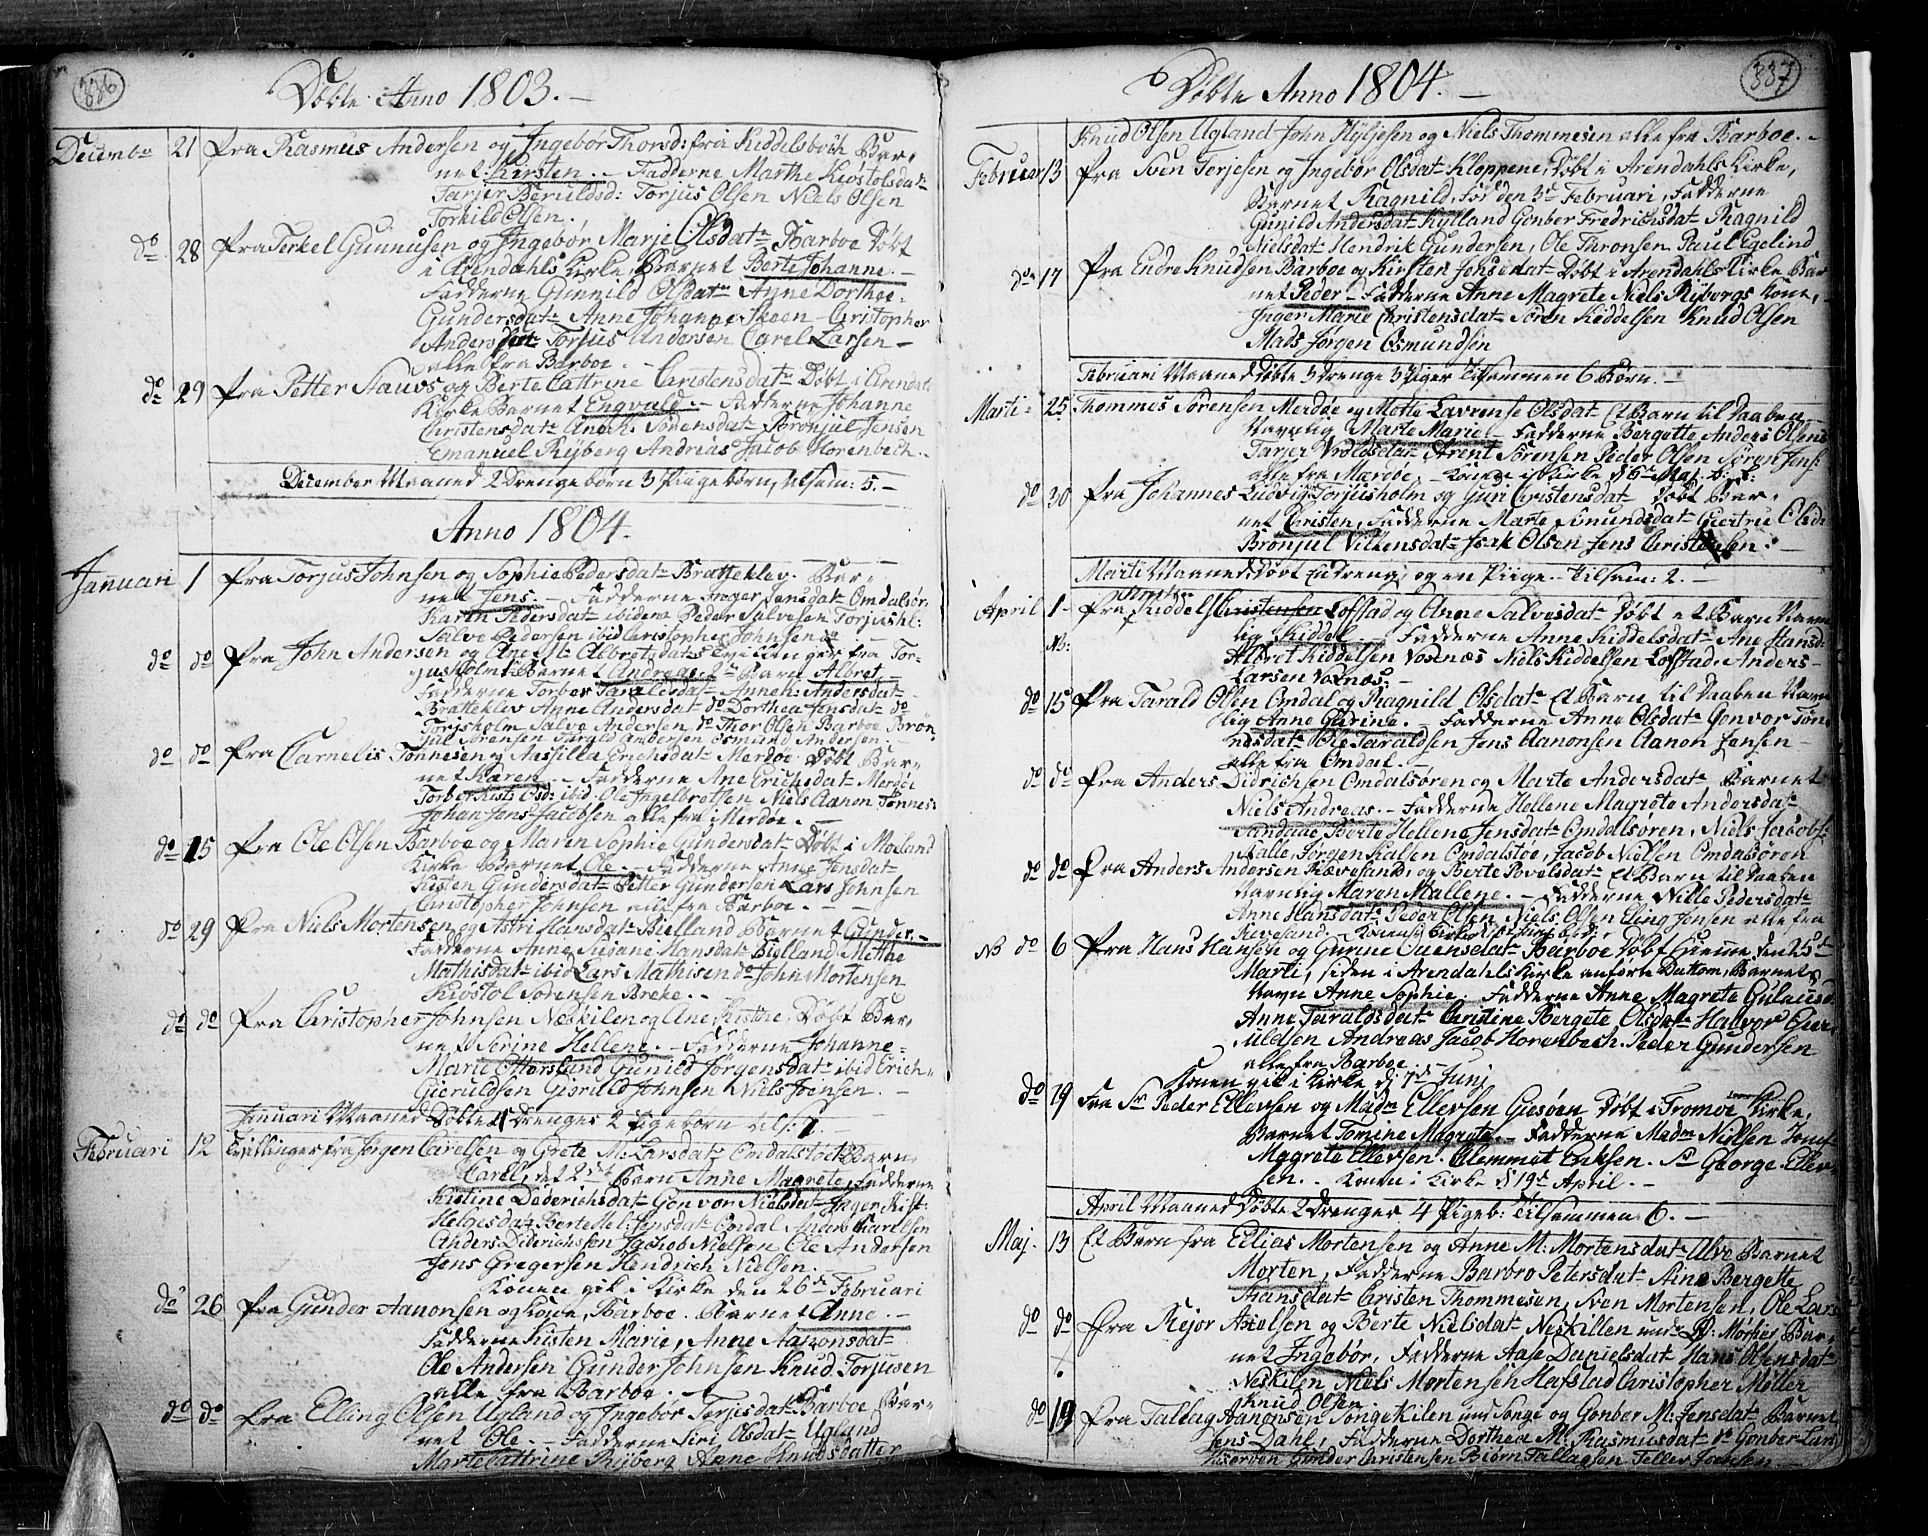 336
Døbte Anno 1803. –
Decembr 21 fra Rasmus Andersen og Ingebør Thorsd: fra Kiddelsboch Bar-
net: Kirsten. – Fadderne Marthe Kiøstolsdatr
Tarjer Beruldsd: Torjus Olsen Niels Olsen
Torkild Olsen.
do 28 fra Terkel Gunnusen og Ingebør Marje Olsdatr Barboe Døbt
i Arendahls Kirke Barnet Berte Johanne. –
Fadderne Gunnild Olsdatr Anne Dorthee
Gundersdatr Anne Johanne Skeen – Christopher
Andersen Torjus Andersen Carel Larsen –
alle fra Barboe. –
do 29 fra Petter Stauvs og Berte Cattrine Christensdatr Døbt i Arendahls
Kirke Barnet Engvald. – Fadderne Johanne
Christensdatr Sørensdatr Brønjul Jensen
Emanuel Ryberg Andreas Jacob Horenbech. –
December Maaned 2 Drengebørn 3 Pigebørn, tilsam: 5. –
Anno 1804.
Januari 1 fra Torjus Johnsen og Sophie Pedersdatr Bratteklev. Bar-
net Jens. – Fadderne Inger Jensdatr Omdalsør.
Karen Pedersdatr ibidem Peder Salvesen Torjushl:
Salve Pedersen ibid Christopher Johnsen
do do fra John Andersen og Ane Albretsdatr Tvillinger fra Tor-
jusholm Barnet Andreas 2de Barn Albret
Fadderne Torber Taraldsdatr Anneh: Andersdatr
Bratteklev Anne Andersdat do Dorthea Jensdat do
Torjsholm Salve Andersen do Thor Olsen Barboe Brøn
jul Sørensen Tarald Andersen Osmund Andersen. –
do do fra Carnelis Tønnesen og Assilla Erichsdatr Merdøe. Døbt Bar-
net Karen – Fadderne Ane Erichsdat Merdøe
Torber Kist: Osd: ibid: Ole Ingelbretsen Niels Aanon Tønnes:
Johan Jens Jacobsen alle fra Merdøe. –
do 15 fra Ole Olsen Barboe og Maren Sophie Gundersdatr Døbt i Moeland
Kirke Barnet Ole – Fadderne Anne Jensdatr
Kisten Gundersdatr Petter Gundersen Lars Johnsen
Christopher Johnsen alle fra Barboe. –
do 29 fra Niels Mortensen og Astri Hansdatr Bielland Barnet Gunder. –
Fadderne Anne Susane Hansdatr Bielland Methe
Mathisdatr ibid Lars Mathisen do John Mortensen
Kiøstol Sørensen Breke. –
do do fra Christopher Johnsen Neskilen og Ane Kisthe. Døbt Bar-
net Serine Hellene. – Fadderne Johanne
Marie Ottersland Gunild Jørgensdatr ibid Erich
Gieruldsen Gieruld Johnsen Niels Jensen. –
Januari Maaned Døbte Drenges 2 Pigebørn tils: 7. –
Februari 12 Tvillinger fra Jørgen Carelsen og Grete M: Larsdatr Omdalstøe Barn
Carel, det 2det Barn Anne Magrete, Fadderne
Kistine Dederichsdatr Gonvor Nielsdat Inger Kist:
Helgesdatr Berte Hel: Jensdatr Omdal Anders Karelsen
Anders Diderichsen Jachob Nielsen Ole Andersen
Jens Gregersen Hendrich Nielsen. –
Konen gik i Kirke den 26de Februari
do 26 fra Gunder Aanonsen og Kone, Barboe. Barnet Anne. –
Fadderne Kisten Marie, Anne Aanonsdatr
Ole Andersen Gunder Johnsen Knud Torjusen
alle fra Barboe. –
do do fra Elling Olsen Ugland og Ingebor Terjesdatr Barboe Bar-
net Ole. – Fadderne Siri Olsdatr Ugland
Marte Cattrine Ryberg Anne Knudsdatter
337
Døbte Anno 1804. –
Knud Olsen Ugland John Kyljesen og Niels Thommesen alle fra Barboe. –
Februar 13 fra Sven Terjesen og Ingebør Olsdatr Kloppene, Døbt i Arendahls Kirke,
Barnet Ragnild, Før den 3de Februari, Fadderne
Gunild Andersdatr Kylland Gonber Fredrichsdat Ragnild
Nielsdatr Hendrik Gundersen, Ole Thronsen Paul Egelind
do 17 fra Endre Knudsen Barboe og Kirsten Jensedatr Døbt i Arendahls Kirke Bar
net Peder – Fadderne Anne Magrete Niels Rybergs Kone,
Inger Marie Christensdatr Søren Kiddelsen Knud Olsen
Mats Jørgen Osmundsen
Februari Maaned Døbte 3 Drenge 3 Piger Tilsammen 6 Børn. –
Marti 25 Thommes Sørensen Merdøe og Mette Lavrense Olsdat Et Barn til Daaben
navnlig Marte Marie. Fadderne Bergette Anders Olsens
Tarjer Vroldsdatr Arent Sørensen Peder Olsen Søren Jens:
alle fra Mardøe. – Konen i Kirke d 6te Maj.
do 30 fra Johannes Ludvig Torjusholm og Guri Christensdatr Døbt Bar-
net Christen, Fadderne Marte Amundsdatr Giertrue Olsd:
Brønjul Villumsdatr Isak Olsen Jens Christensen. –
Marti Maaned: Døbt En dreng og en Piige – Tilsam: 2. –
April 1 fra Kiddel Christensen Lofstad og Anne Salvesdatr Døbt et Barn Navn
NB: lig Kiddel. Fadderne Anne Kiddelsdatr Ane Hansd:
Albret Kiddelsen Voxnæs Niels Kiddelsen Lofstad. Anders
Larsen Voxnæs. –
do 15 fra Tarald Olsen Omdal og Ragnild Olsdatr Et Barn til Daaben Navn
lig Anne Gurine. – Fadderne Anne Olsdatr Gonvor Tøn
nesdatr Ole Taraldsen Jens Aanonsen Aanon Jensen –
alle fra Omdal. –
do do fra Anders Didrichsen Omdalsøren og Marte Andersdatr Barnet
Niels Andreas – Fadderne Hellene Magrete Andersdatr
Sandaae Berte Hellene Jensdatr Omdalsøren, Niels Jacobs:
Salle, Jørgen Kalsen Omdalstøe, Jacob Nielsen Omdalsøren
do do fra Anders Andersen Rævesand, og Berte Povelsdatr Et Barn til Daaben
navnlig Maren Mallene. – Fadderne Nille Pedersdatr
Anne Hansdatr Peder Olsen Niels Olsen Eling Jensen alle fra
Revesand.
NB do 6 fra Hans Hansen og Gunne Svensdatr Barboe Døbt hiemme den 25de
Marti, siden i Arendahls Kirke anførte Dattom, Barnets
Navn Anne Sophie. Fadderne Anne Magrete Gulausd
Anne Taraldsdatr Christine Bergete Olsdatr Halvor Gier
uldsen Andreas Jacob Horenbech. Peder Gundersen
alle fra Barboe
Konen gik i Kirke d 7de Junj
do 19 Fra Sr Peder Ellevsen og Madm Ellevsen Giesøen Døbt i Tromøe Kirke.
Barnet Tomine Magrete. Fadderne Madm Nielsen Jomf
Magrete Ellevsen. Clemmet Eriksen. Sr George Ellev
sen. – Konen i Kirke d 19de April. –
April Maaned Døbte 2 Drenger 4 Pigeb: Tilsammen 6. –
Maj 13 Et Barn fra Edias Mortensen og Anne M: Mortensdatr Alve Barnet
Morten, Fadderne Barbro Petersdatr Aine Bergette
Hansdatr Christen Thommesen, Sven Mortensen, Ole Lars
do do fra Rejor Axelsen og Berte Nielsdat Neskillen Bar-
net Ingebør, Fadderne Aase Danielsdatr Hans Olsensdatr
Neskilen Niels Mortensen Hafstad Christopher Møller
Knud Olsen.
do 19 fra Tallag Aanonsen Songekilen und Songe og Gonber M: Jensdatr Barnet
Jens Dahl, Fadderne Dorthea M: Rasmusdatr Gonber Lars
Gunder Christensen Biørn Tallagsen Teller Joensen –